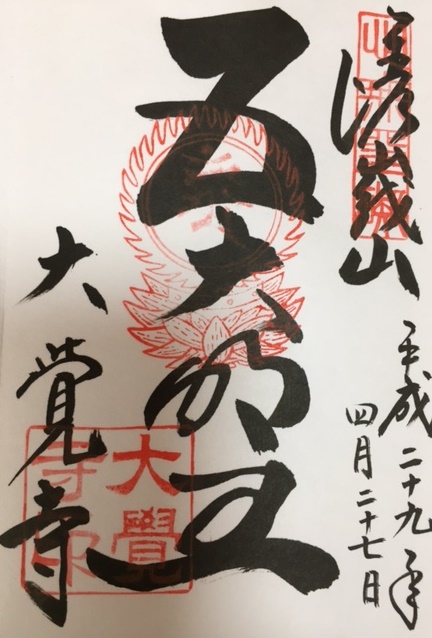 嵯峩山
平成二十九年
四月二十七日
五大明王
大覺寺
大覺
寺印